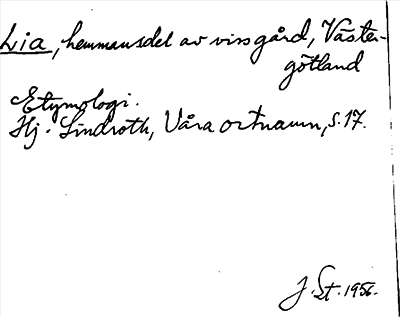 Lia, hemmansdel av viss gård, Väster-
götland
Etymologi.
Hj. Lindroth, Våra ortnamn, s. 17.
J. St. 1956.